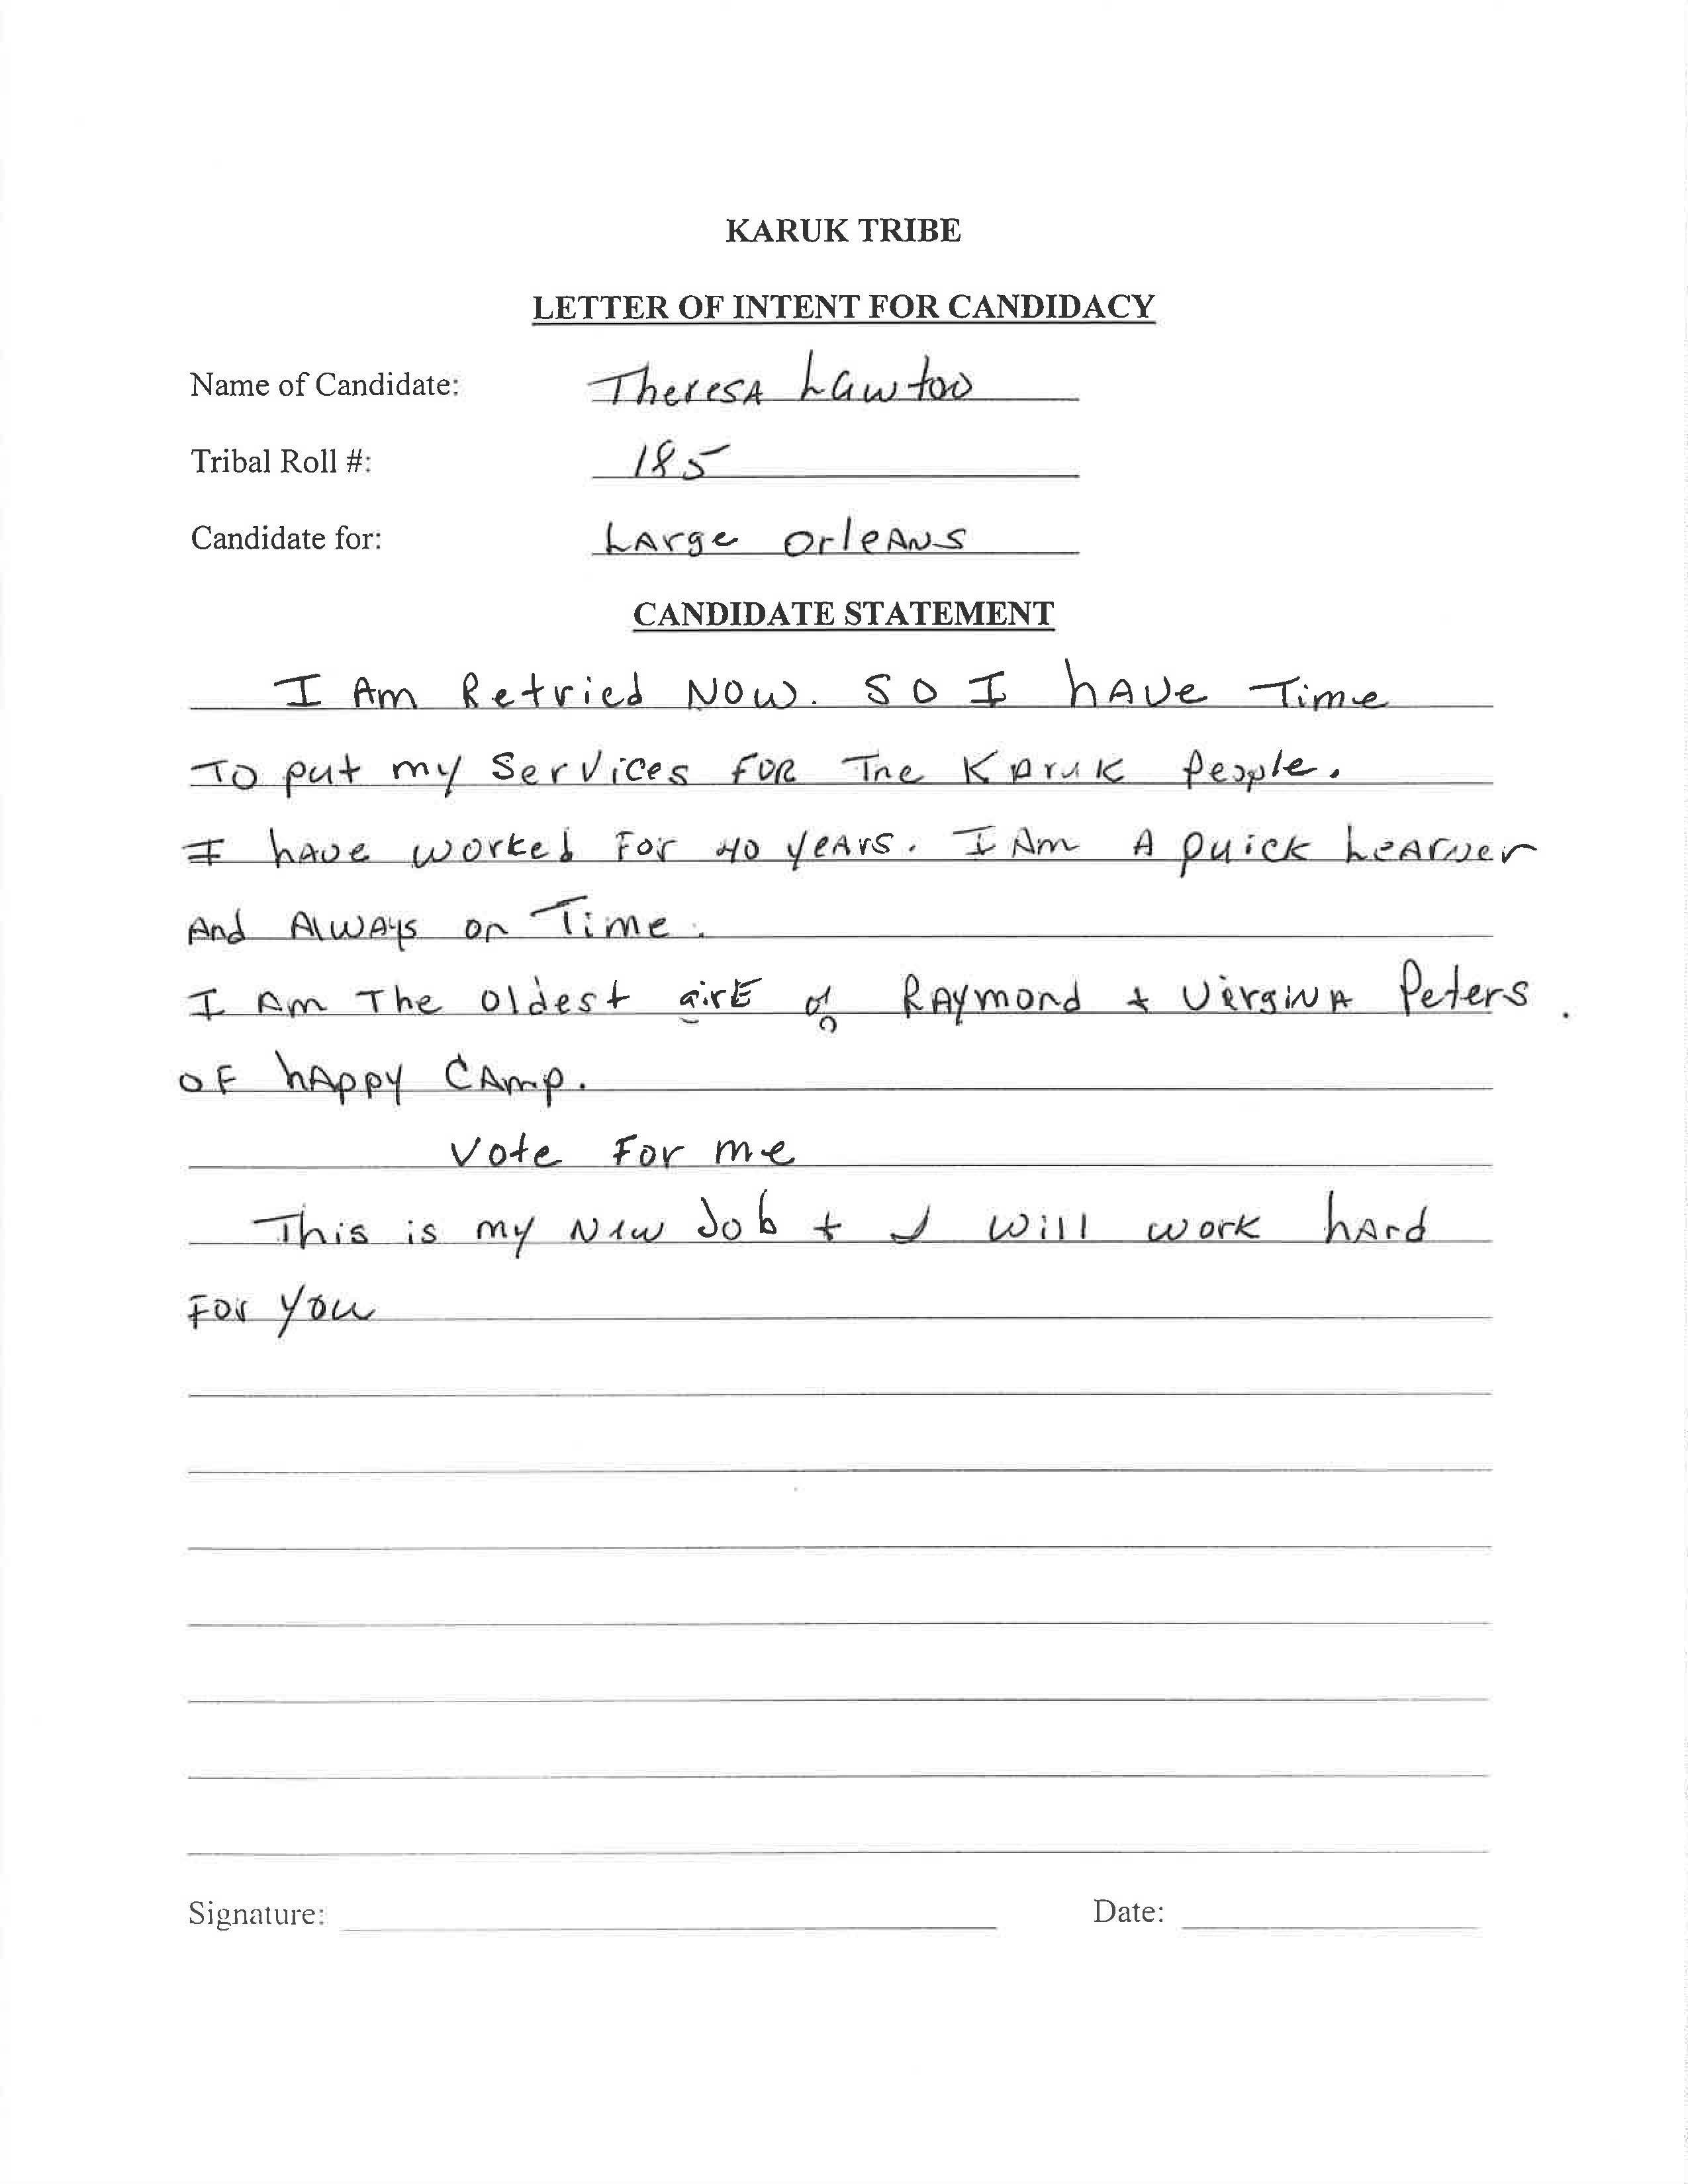 KARUK TRIBE
LETTER OF INTENT FOR CANDIDACY
Name of Candidate: Theresa Lawton
Tribal Roll #: 185
Candidate for: Large Orleans
CANDIDATE STATEMENT
I Am Retried Now. So I have Time
To put my Services FOR The Karuk People.
I have worked For 40 years. I Am A quick Learner
And Always on Time.
I Am The oldest of Raymond + Virgina Peters.
OF hAppy CAmp.
Vote For me
This is my New Job + I will work hArd
For you
Signature:
Date: